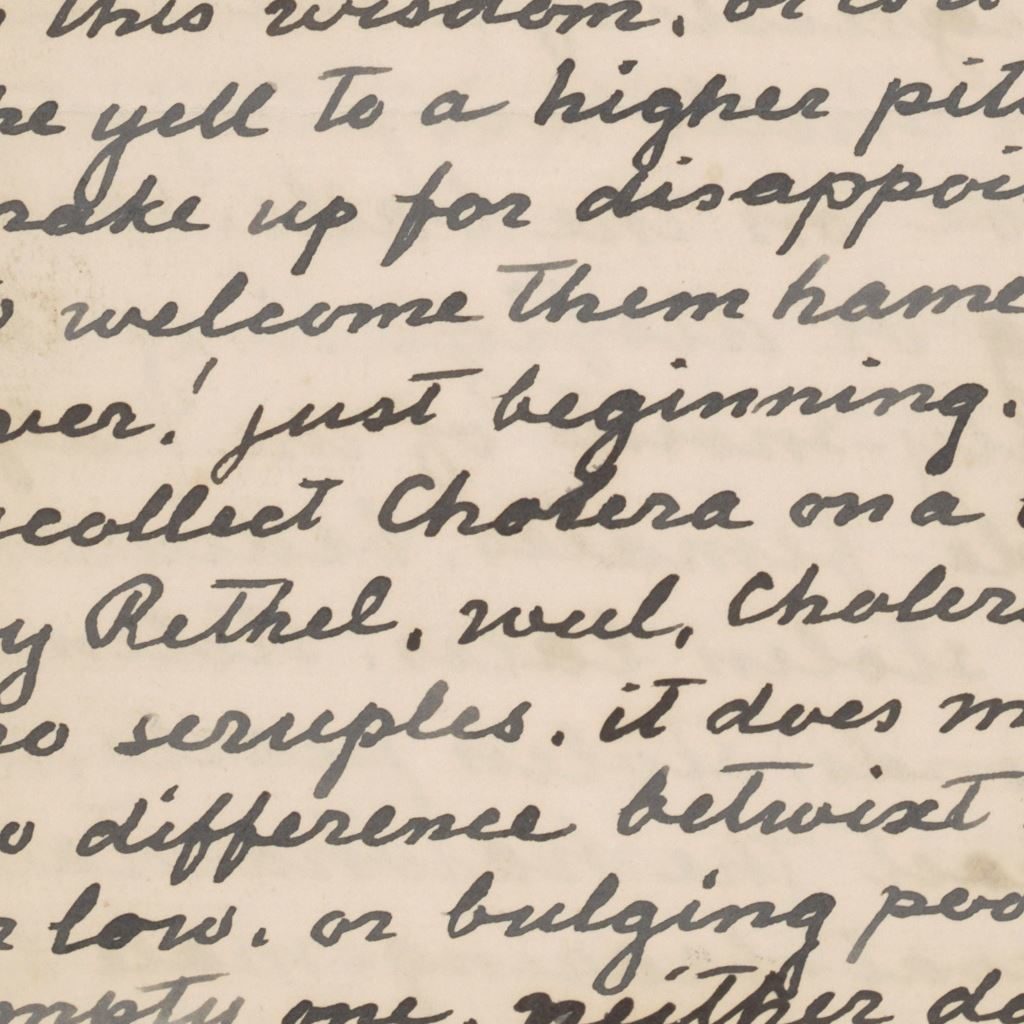 this wisdom, or
he yell to a higher pit
make up for disappoi
welcome them home
ver! just beginning.
ecollect Cholera on a
y Rethel, well, Choler
no scruples. it does m
o difference betwixt
r low. or bulging poo
mpty one. neither do